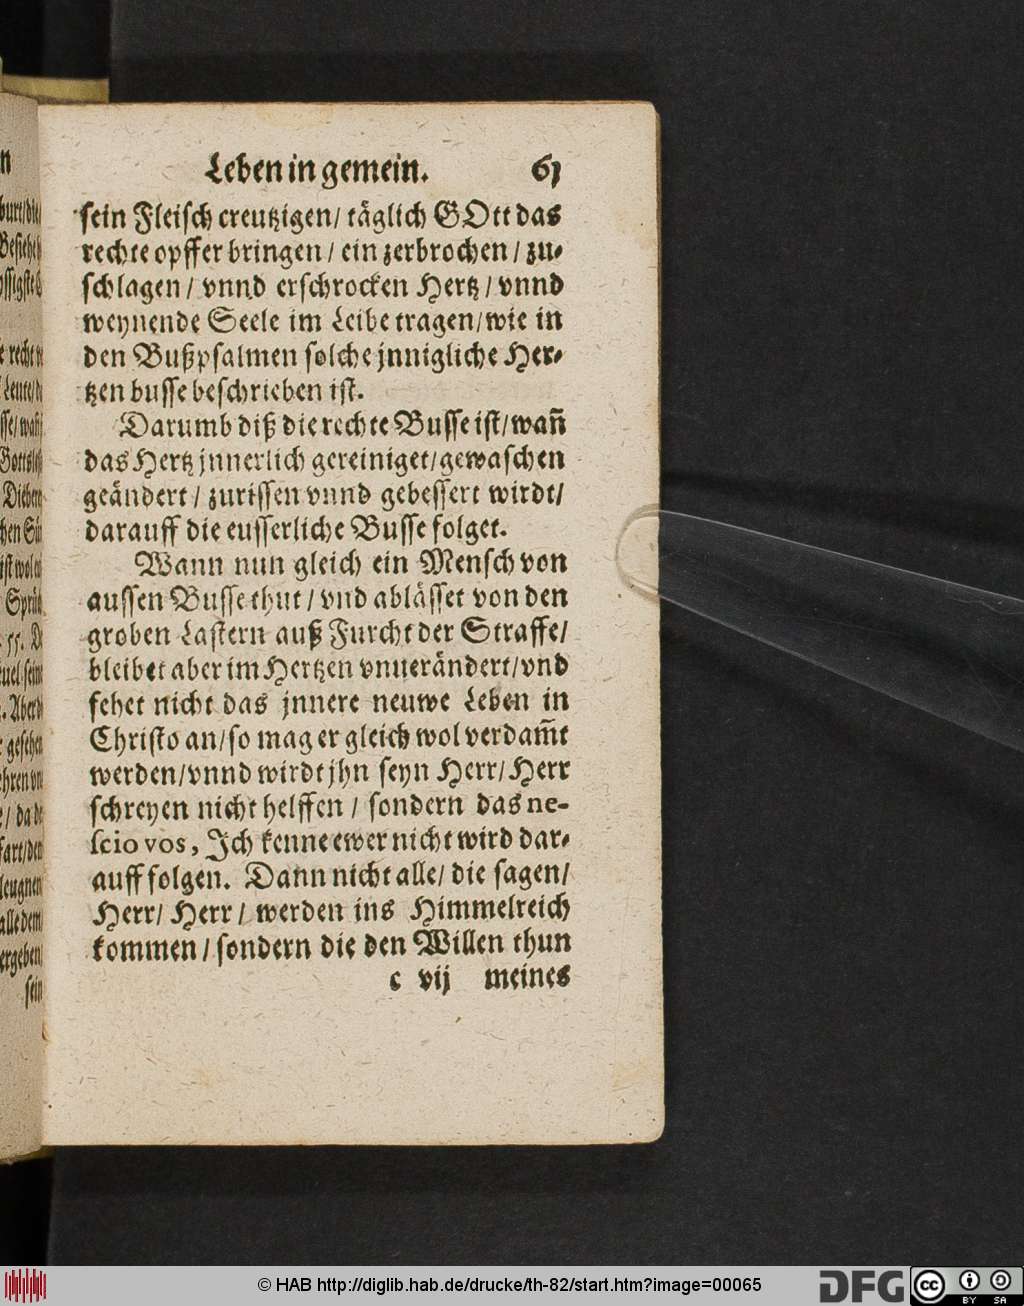 Leben in gemein. 61
sein Fleisch creutzigen/ täglich GOtt das
rechte opffer bringen / ein zerbrochen / zu-
schlagen / vnnd erschrocken Hertz / vnnd
weynende Seele im Leibe tragen/wie in
den Bußpsalmen solche jnnigliche Her-
tzen busse beschrieben ist.
Darumb diß die rechte Busse ist/wañ
das Hertz jnnerlich gereiniget/gewaschen
geändert / zurissen vnnd gebessert wirdt/
darauff die eusserliche Busse folget.
Wann nun gleich ein Mensch von
aussen Busse thut / vnd ablässet von den
groben Lastern auß Furcht der Straffe/
bleibet aber im Hertzen vnuerändert/vnd
fehet nicht das jnnere neuwe Leben in
Christo an/so mag er gleich wol verdam̄t
werden/vnnd wirdt jhn seyn Herr/ Herr
schreyen nicht helffen / sondern das ne-
scio vos, Ich kenne ewer nicht wird dar-
auff folgen. Dann nicht alle/ die sagen/
Herr/ Herr / werden ins Himmelreich
kommen / sondern die den Willen thun
c vij meines
© HAB http://diglib.hab.de/drucke/th-82/start.htm?image=00065
DFG
cc BY SA